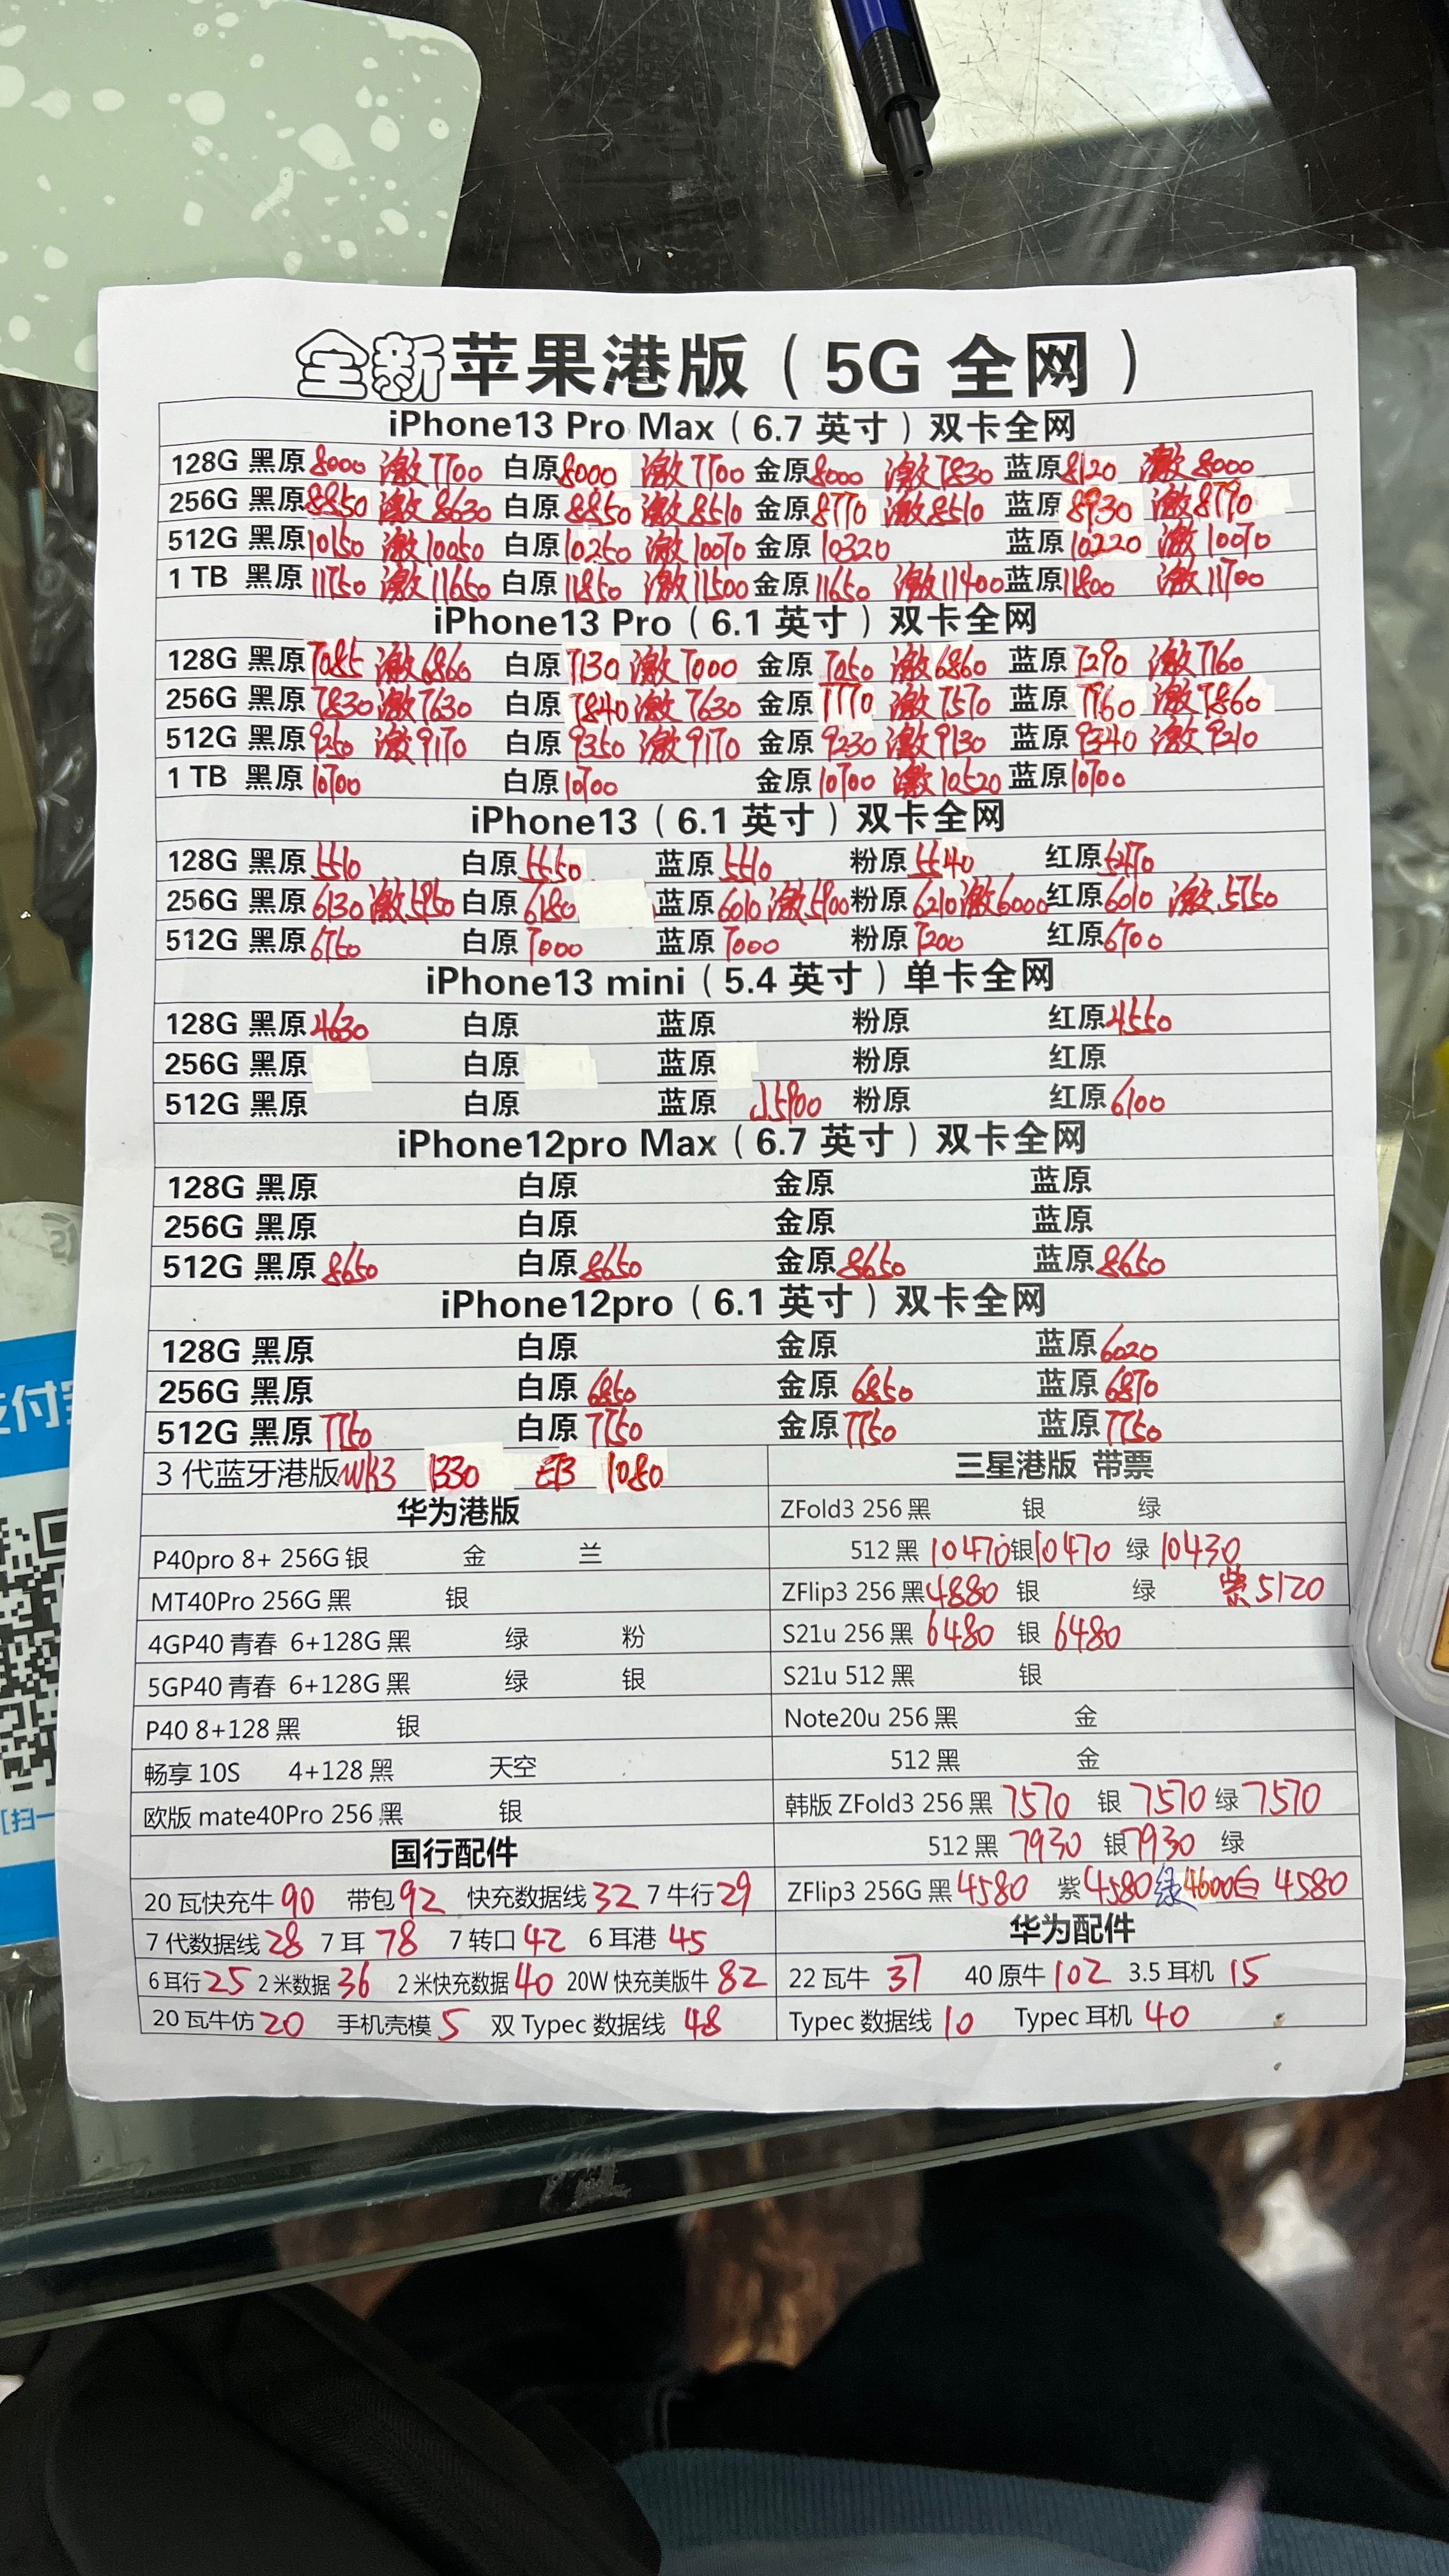 全新苹果港版（5G 全网）
iPhone13 Pro Max（6.7 英寸）双卡全网
128G 黑原 8000 激 7700 白原 8000 激 7700 金原 8000 激 7830 蓝原 8120 激 8000
256G 黑原 8850 激 8630 白原 8850 激 8510 金原 8770 激 8510 蓝原 8930 激 8790
512G 黑原 10150 激 10050 白原 10250 激 10070 金原 10320 蓝原 10220 激 10070
1 TB 黑原 11750 激 11650 白原 11850 激 11500 金原 11650 激 11400 蓝原 11800 激 11700
iPhone13 Pro（6.1 英寸）双卡全网
128G 黑原 7085 激 6860 白原 7130 激 7000 金原 7050 激 6860 蓝原 7290 激 7160
256G 黑原 7830 激 7630 白原 7840 激 7630 金原 7770 激 7570 蓝原 7960 激 7860
512G 黑原 9250 激 9170 白原 9350 激 9170 金原 9230 激 9130 蓝原 9340 激 9210
1 TB 黑原 10700 白原 10700 金原 10700 激 10520 蓝原 10700
iPhone13（6.1 英寸）双卡全网
128G 黑原 5510 白原 5550 蓝原 5510 粉原 5540 红原 5470
256G 黑原 6130 激 5950 白原 6180 蓝原 6010 激 5900 粉原 6210 激 6000 红原 6010 激 5750
512G 黑原 6750 白原 7000 蓝原 7000 粉原 7200 红原 6700
iPhone13 mini（5.4 英寸）单卡全网
128G 黑原 4630 白原 蓝原 粉原 红原 4550
256G 黑原 白原 蓝原 粉原 红原
512G 黑原 白原 蓝原 5900 粉原 红原 6100
iPhone12pro Max（6.7 英寸）双卡全网
128G 黑原 白原 金原 蓝原
256G 黑原 白原 金原 蓝原
512G 黑原 8650 白原 8650 金原 8650 蓝原 8650
iPhone12pro（6.1 英寸）双卡全网
128G 黑原 白原 金原 蓝原 6020
256G 黑原 白原 6850 金原 6850 蓝原 6870
512G 黑原 7750 白原 7750 金原 7750 蓝原 7750
3 代蓝牙港版 WK3 1330 EB 1080
华为港版
P40pro 8+ 256G 银 金 兰
MT40Pro 256G 黑 银
4GP40 青春 6+128G 黑 绿 粉
5GP40 青春 6+128G 黑 绿 银
P40 8+128 黑 银
畅享 10S 4+128 黑 天空
欧版 mate40Pro 256 黑 银
国行配件
20 瓦快充牛 90 带包 92 快充数据线 32 7 牛行 29
7 代数据线 28 7 耳 78 7 转口 42 6 耳港 45
6 耳行 25 2 米数据 36 2 米快充数据 40 20W 快充美版牛 82
20 瓦牛仿 20 手机壳模 5 双 Typec 数据线 48
三星港版 带票
ZFold3 256 黑 银 绿
512 黑 10470 银 10470 绿 10430
ZFlip3 256 黑 4880 银 绿 紫 5120
S21u 256 黑 6480 银 6480
S21u 512 黑 银
Note20u 256 黑 金
512 黑 金
韩版 ZFold3 256 黑 7570 银 7570 绿 7570
512 黑 7930 银 7930 绿
ZFlip3 256G 黑 4580 紫 4580 绿 4600 白 4580
华为配件
22 瓦牛 37 40 原牛 102 3.5 耳机 15
Typec 数据线 10 Typec 耳机 40
支付宝
[扫一